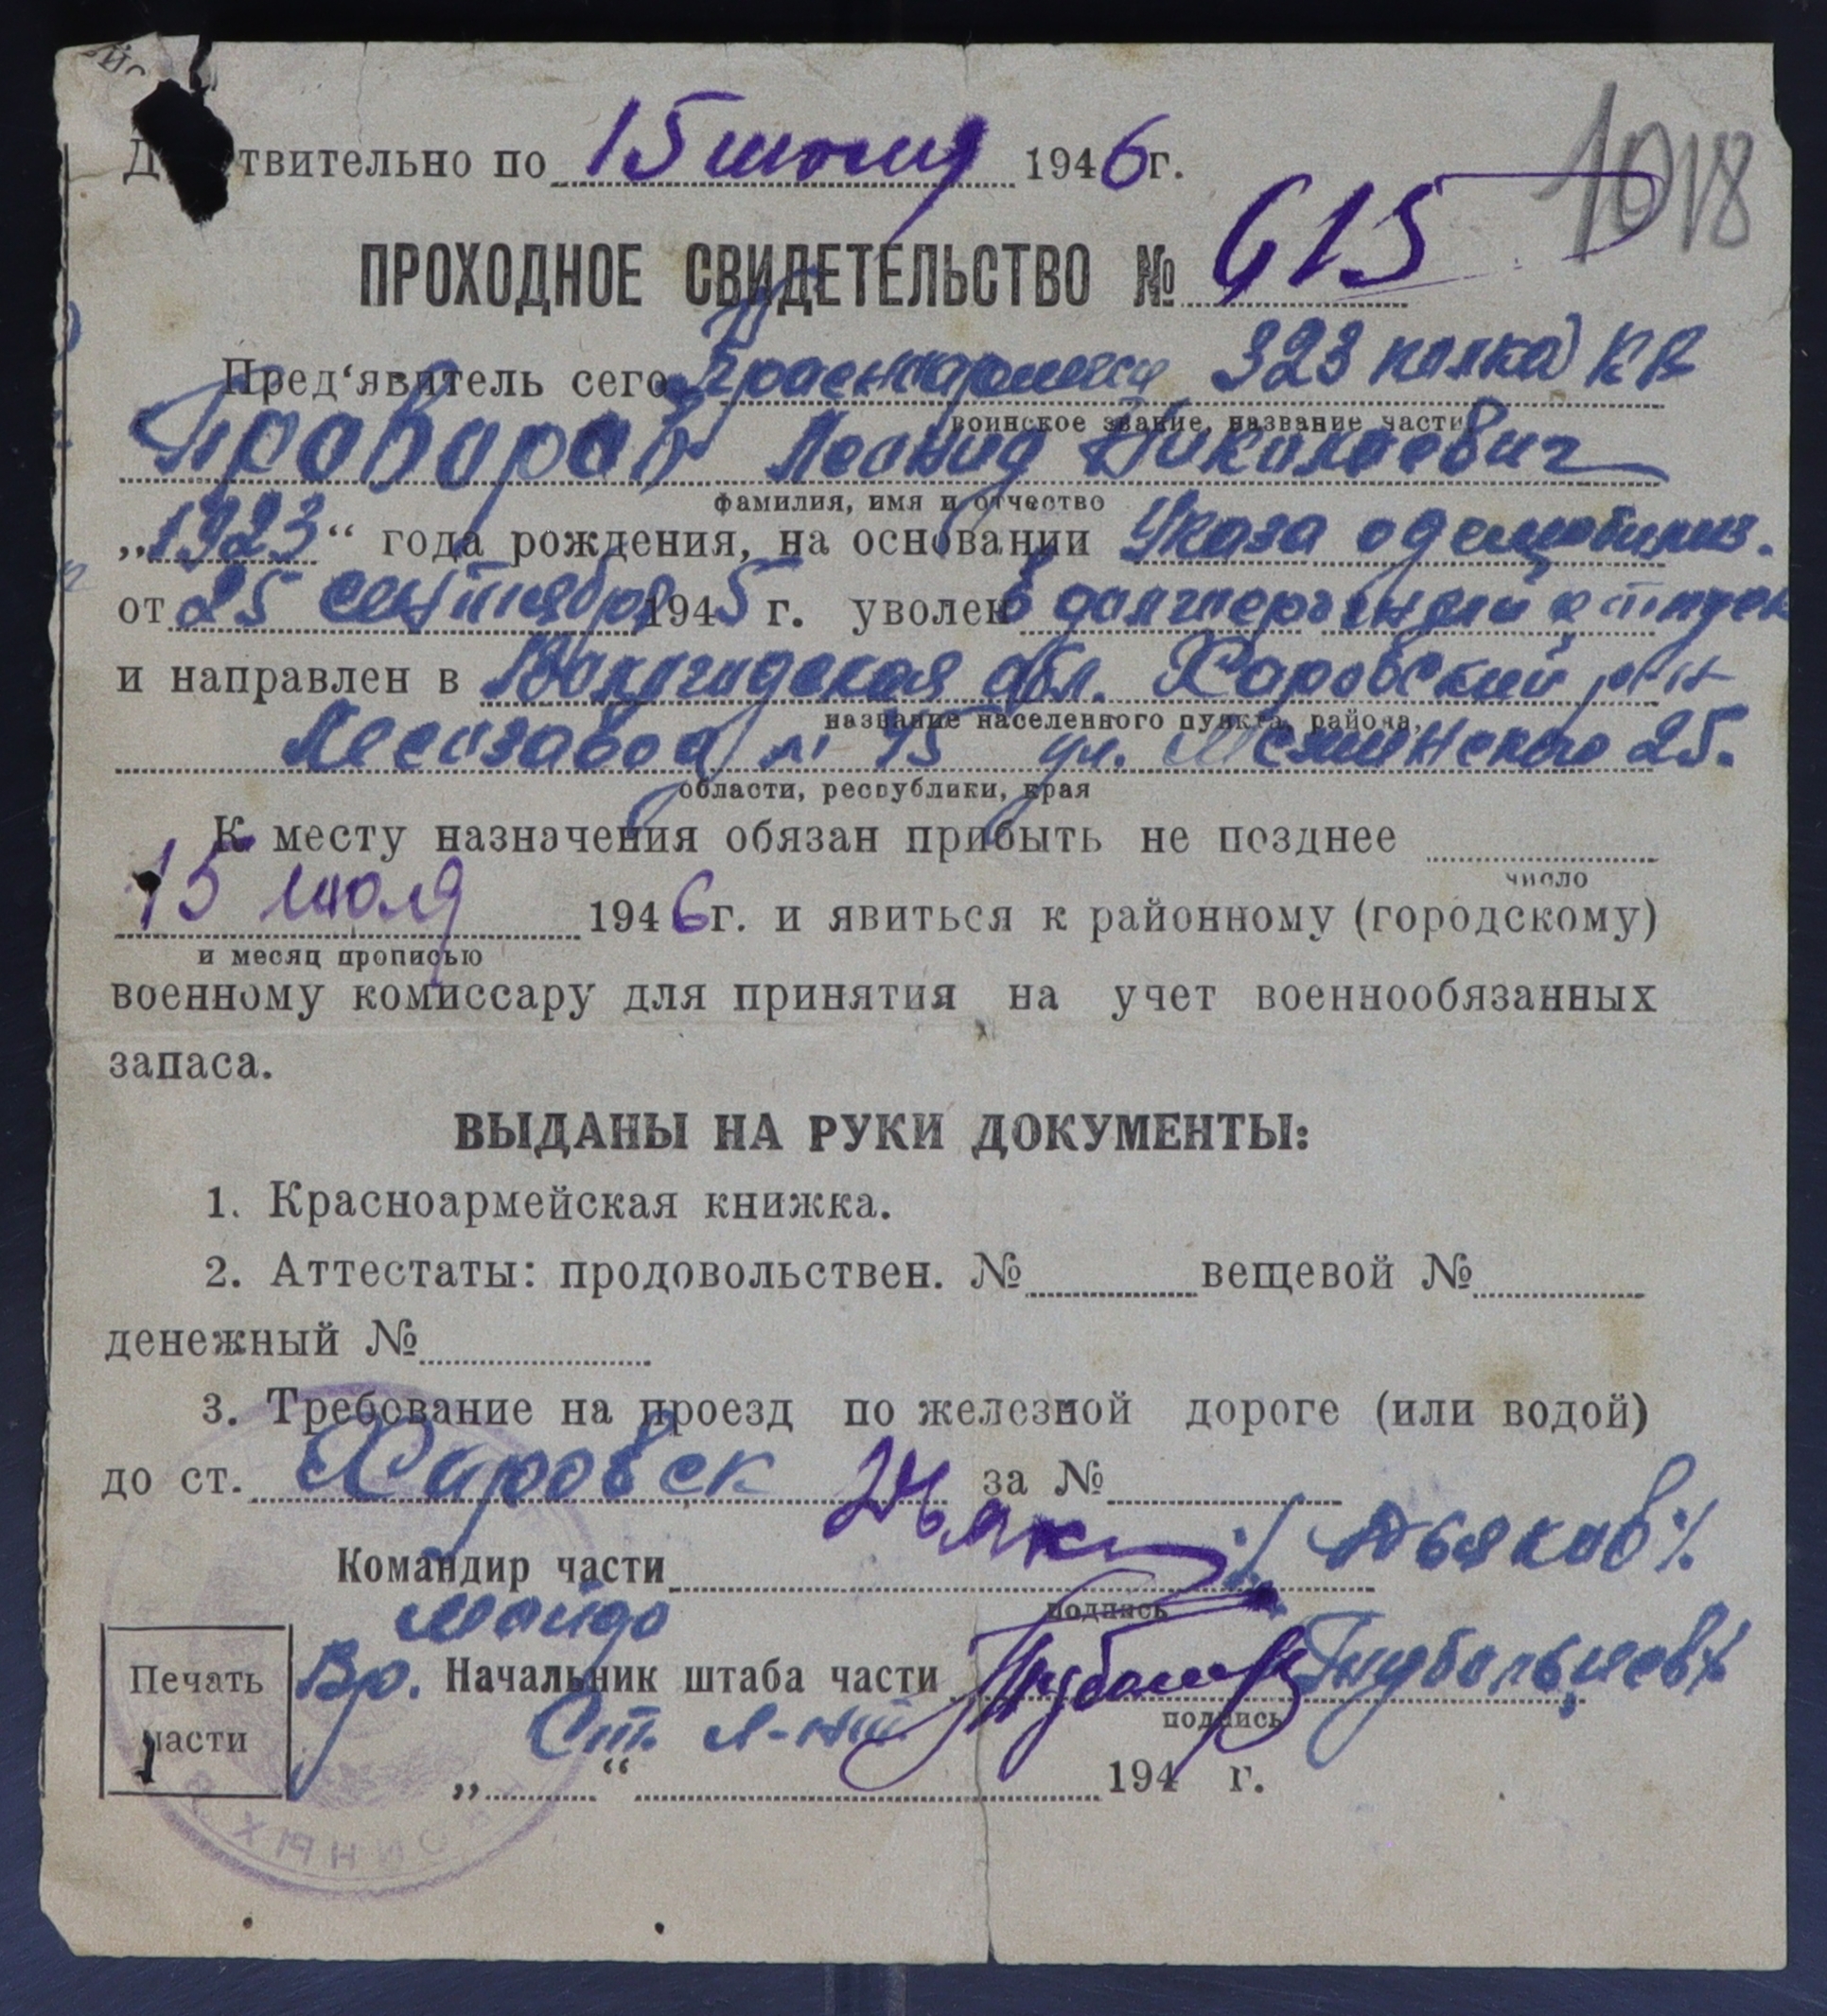 Д твительно по 15 июля 1946 г.
1018
ПРОХОДНОЕ СВИДЕТЕЛЬСТВО № 615
Пред‘явитель сего Красноармеец 323 полка КВ
воинское звание, название части
Проворов Леонид Николаевич
фамилия, имя и отчество
„1923“ года рождения, на основании Указа о демобилиз.
от 25 сентября 1945 г. уволен в долгосрочный отпуск
и направлен в Вологодская обл. Харовский р-н
название населенного пункта, района,
Лесозавод № 45 ул. 25.
области, республики, края
К месту назначения обязан прибыть не позднее
число
15 июля 1946 г. и явиться к районному (городскому)
и месяц прописью
военному комиссару для принятия на учет военнообязанных
запаса.
ВЫДАНЫ НА РУКИ ДОКУМЕНТЫ:
1. Красноармейская книжка.
2. Аттестаты: продовольствен. № вещевой №
денежный №
3. Требование на проезд по железной дороге (или водой)
до ст. Харовск за №
Командир части /Дьяков/
подпись
майор
Вр. Начальник штаба части
Ст. л-нт
подпись
Печать
части
„ “ 194 г.